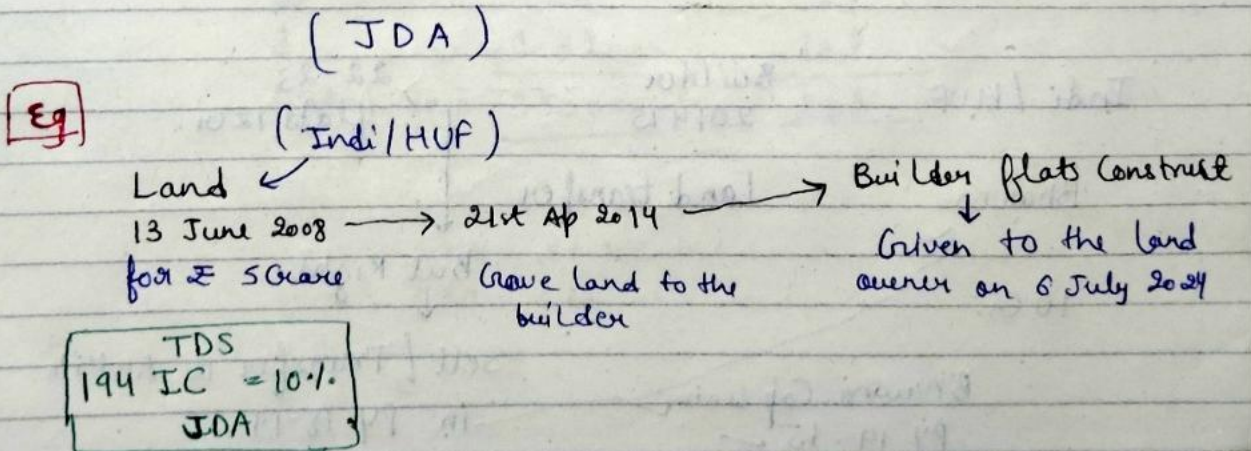 (JDA)
Eg
(Indi/HUF)
Land
13 June 2008 → 21st Ap 2014 → Builder flats Construct
for ₹ 5 Crore
Gave land to the builder
Given to the land owner on 6 July 2024
TDS
194 IC = 10%
JDA